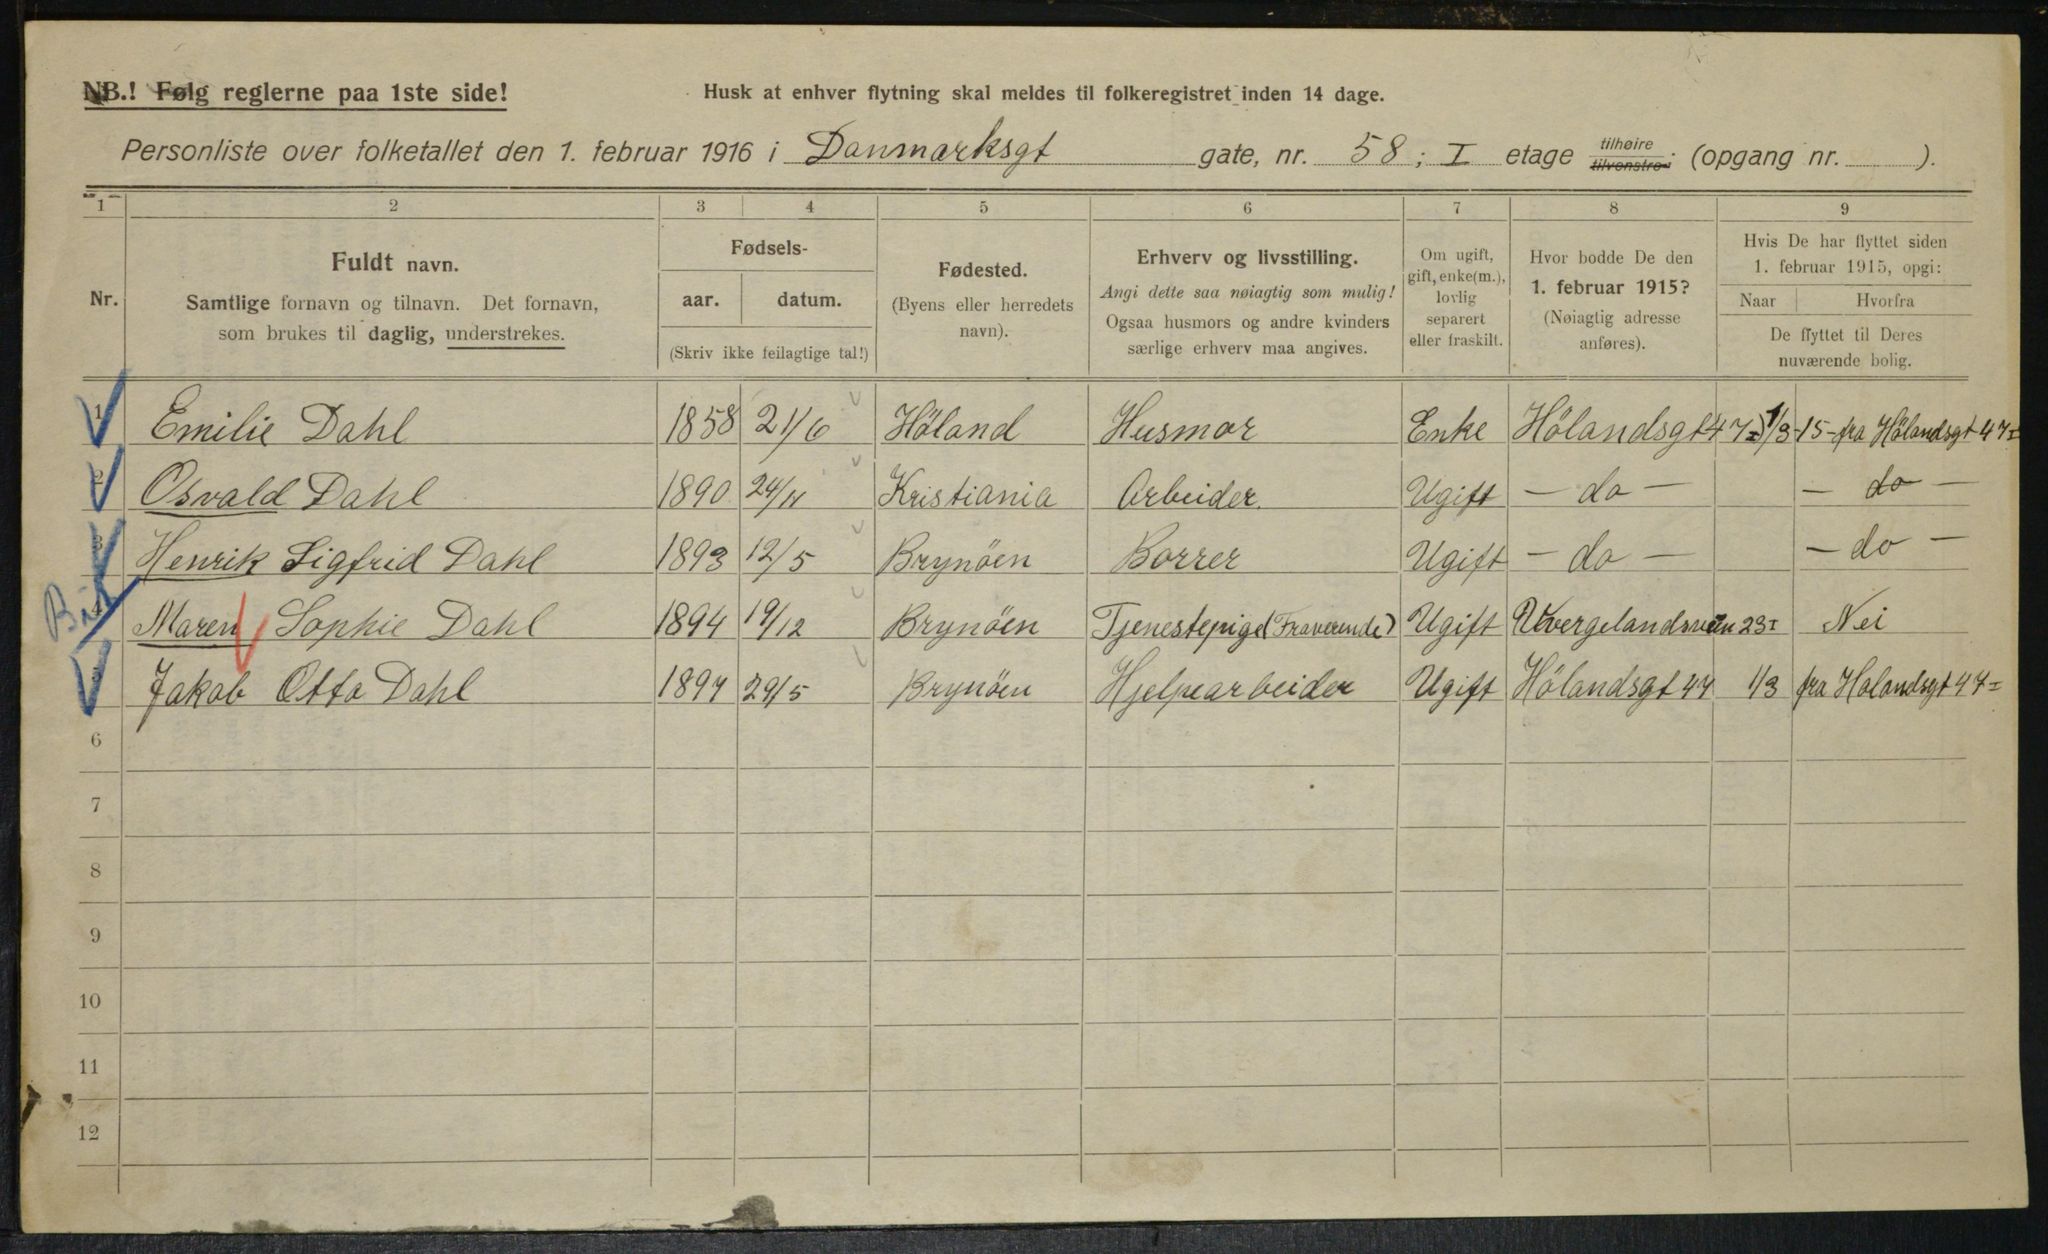 NB.! Følg reglerne paa 1ste side!
Husk at enhver flytning skal meldes til folkeregistret inden 14 dage.
Personliste over folketallet den 1. februar 1916 i Danmarksgt gate, nr. 58; I etage tilhøire tilvenstre; (opgang nr. ).
1 2 3 4 5 6 7 8 9
Nr.
Fuldt navn.
Samtlige fornavn og tilnavn. Det fornavn,
som brukes til daglig, understrekes.
Fødsels-
aar. datum.
(Skriv ikke feilagtige tal!)
Fødested.
(Byens eller herredets
navn).
Erhverv og livsstilling.
Angi dette saa nøiagtig som mulig!
Ogsaa husmors og andre kvinders
særlige erhverv maa angives.
Om ugift,
gift, enke(m.),
lovlig
separert
eller fraskilt.
Hvor bodde De den
1. februar 1915?
(Nøiagtig adresse
anføres).
Hvis De har flyttet siden
1. februar 1915, opgi:
Naar Hvorfra
De flyttet til Deres
nuværende bolig.
1 Emilie Dahl 1858 21/6 Höland Husmor Enke Hölandsgt 47 I 1/3 -15- fra Hölandsgt 47 I
2 Osvald Dahl 1890 24/11 Kristiania Arbeider. Ugift - do - - do -
3 Henrik Sigfrid Dahl 1893 12/5 Brynöen Borrer Ugift - do - - do -
4 Maren Sophie Dahl 1894 19/12 Brynöen Tjenestepige (Fraverende) Ugift 23 I Nei
5 Jakob Otto Dahl 1897 29/5 Brynöen Hjelpearbeider Ugift Hölandsgt 47 1/3 fra Hölandsgt 47 I
6
7
8
9
10
11
12